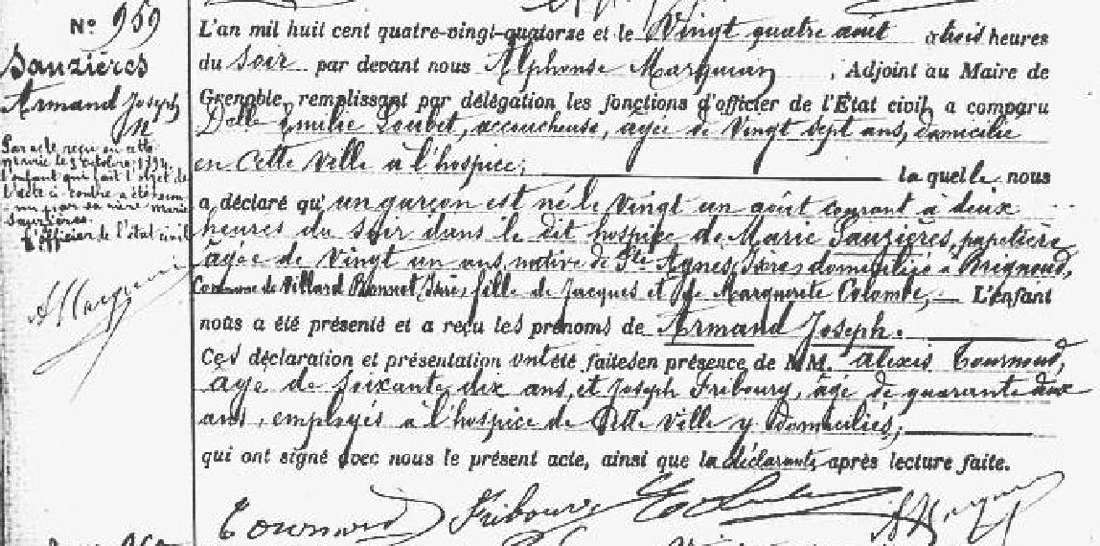 N° 959
Sauzières
Armand Joseph
N
Par acte reçu en cette
mairie le 3 octobre 1894
l'enfant qui fait l'objet de
l'acte ci contre a été recon
nu par sa mère Marie
Sauzières.
l'officier de l'état civil
L'an mil huit cent quatre-vingt-quatorze et le Vingt quatre août à trois heures
du Soir par devant nous Alphonse Marquian, Adjoint au Maire de
Grenoble, remplissant par délégation les fonctions d'officier de l'État civil, a comparu
Delle Emilie Loubet, accoucheuse, âgée de Vingt sept ans, domicilie
en cette ville à l'hospice; la quelle nous
a déclaré qu'un garçon est né le vingt un août courant à deux
heures du soir dans le dit hospice de Marie Sauzières, papetière
âgée de vingt un ans, native de Ste Agnès, Isère domiciliée à Brignoud,
Commune de Villard Bonnot, Isère, fille de Jacques et de Marguerite Colombe, L'enfant
nous a été présenté et a reçu les prénoms de Armand Joseph.
Ces déclaration et présentation ont été faites en présence de MM. Alexis Tournoud,
âgé de soixante dix ans, et Joseph Fribourg, âgé de quarante deux
ans, employés à l'hospice de cette ville y domiciliés;
qui ont signé avec nous le présent acte, ainsi que la déclarante, après lecture faite.
Tournoud Fribourg